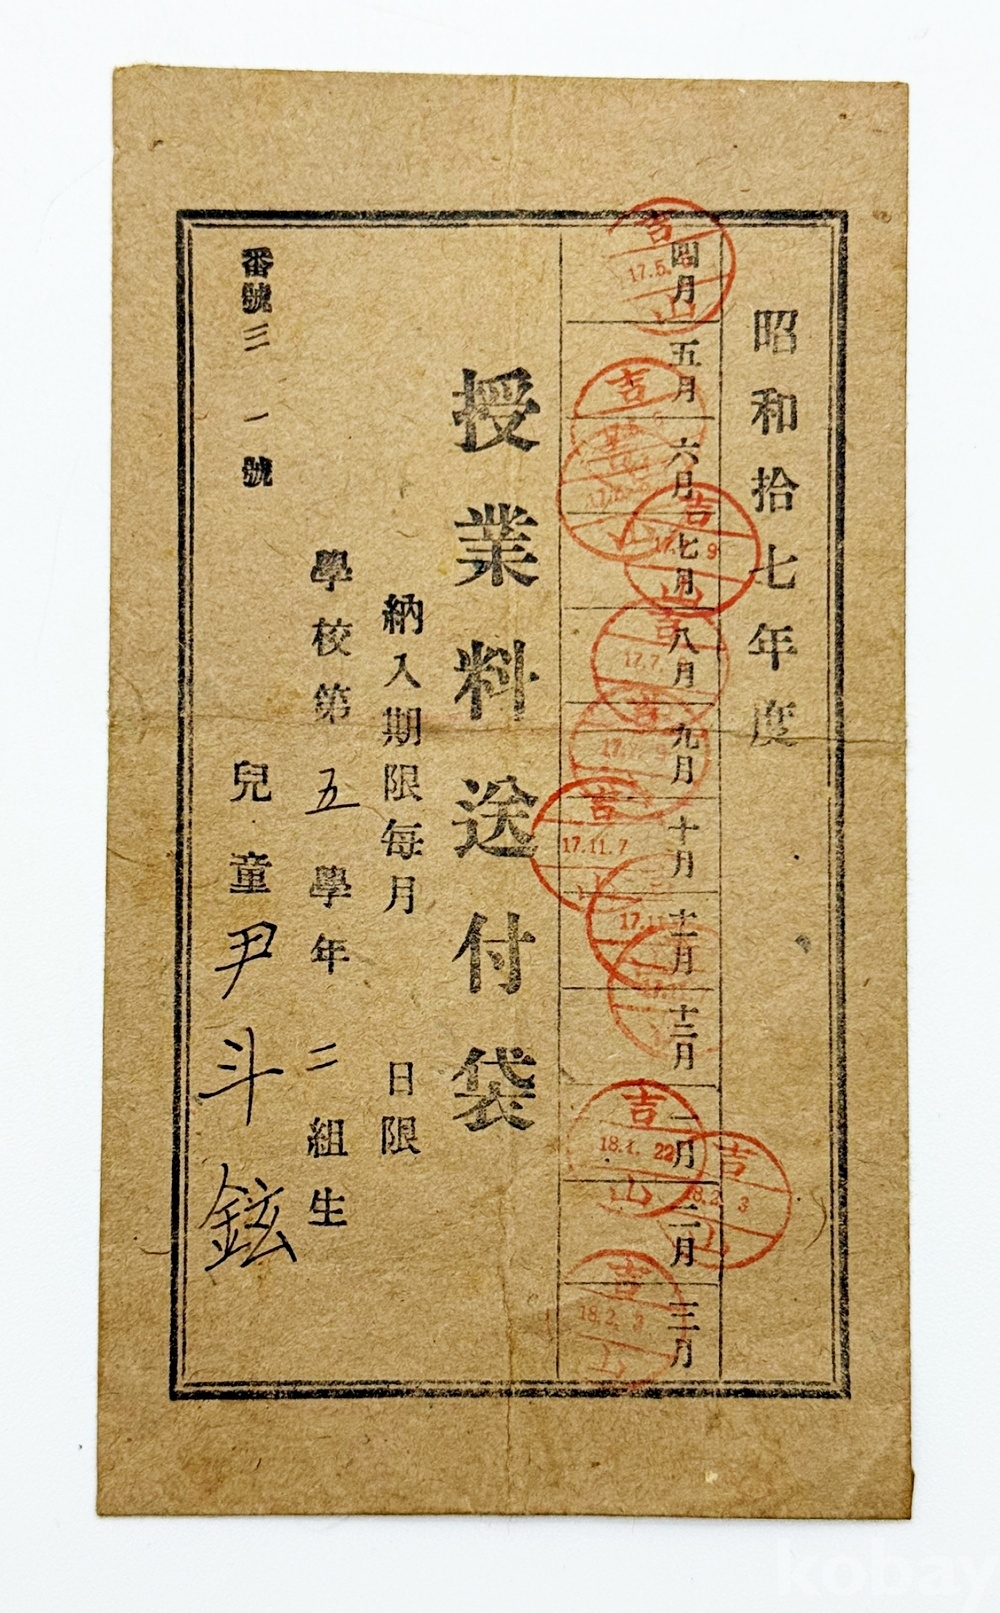 昭和拾七年度
四月
五月
六月
七月
八月
九月
十月
十一月
十二月
一月
二月
三月
吉
17.5.
山
吉
吉
山
吉
17. 9
山
吉
17.7.
吉
吉
17.11.7
17.11
吉
18.1.22
山
吉
18.2.3
山
吉
18.2.3
山
授業料送付袋
納入期限每月 日限
學校第五學年二組生
番號三一號
兒童尹斗鉉
kobay